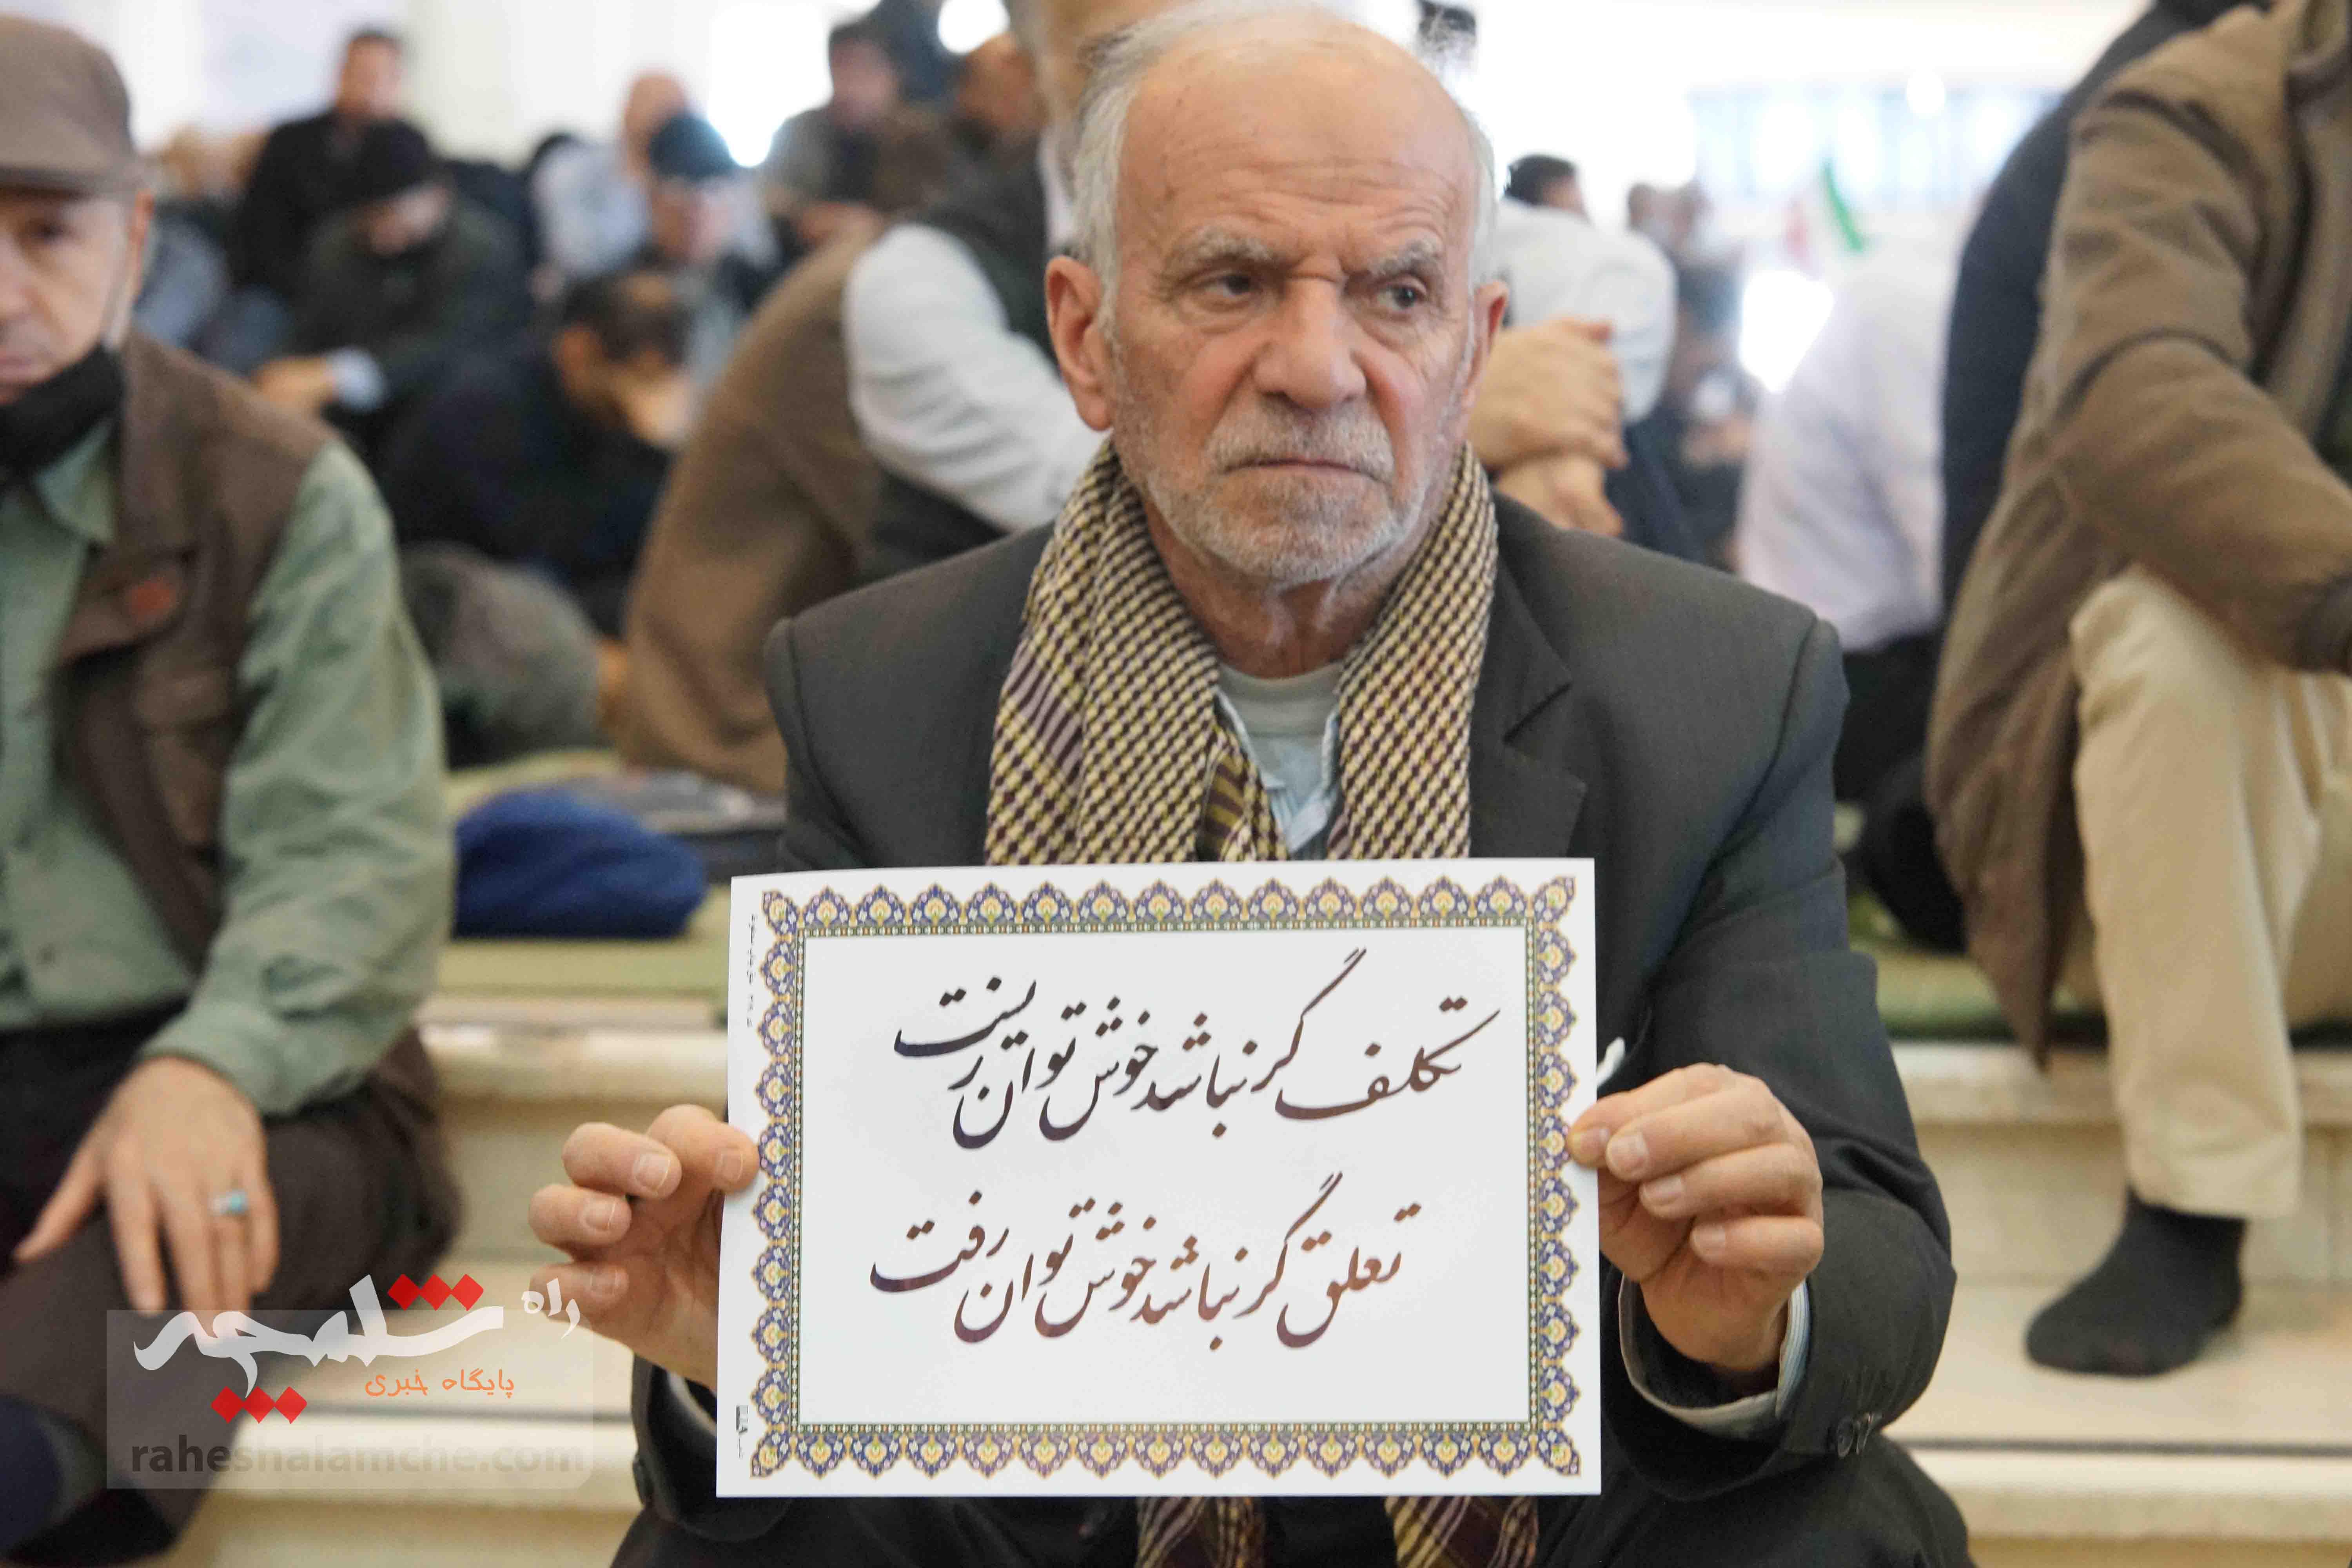 تکلف گر نباشد خوش توان زیست
تعلق گر نباشد خوش توان رفت
راه شلمچه
پایگاه خبری
raheshalamche.com